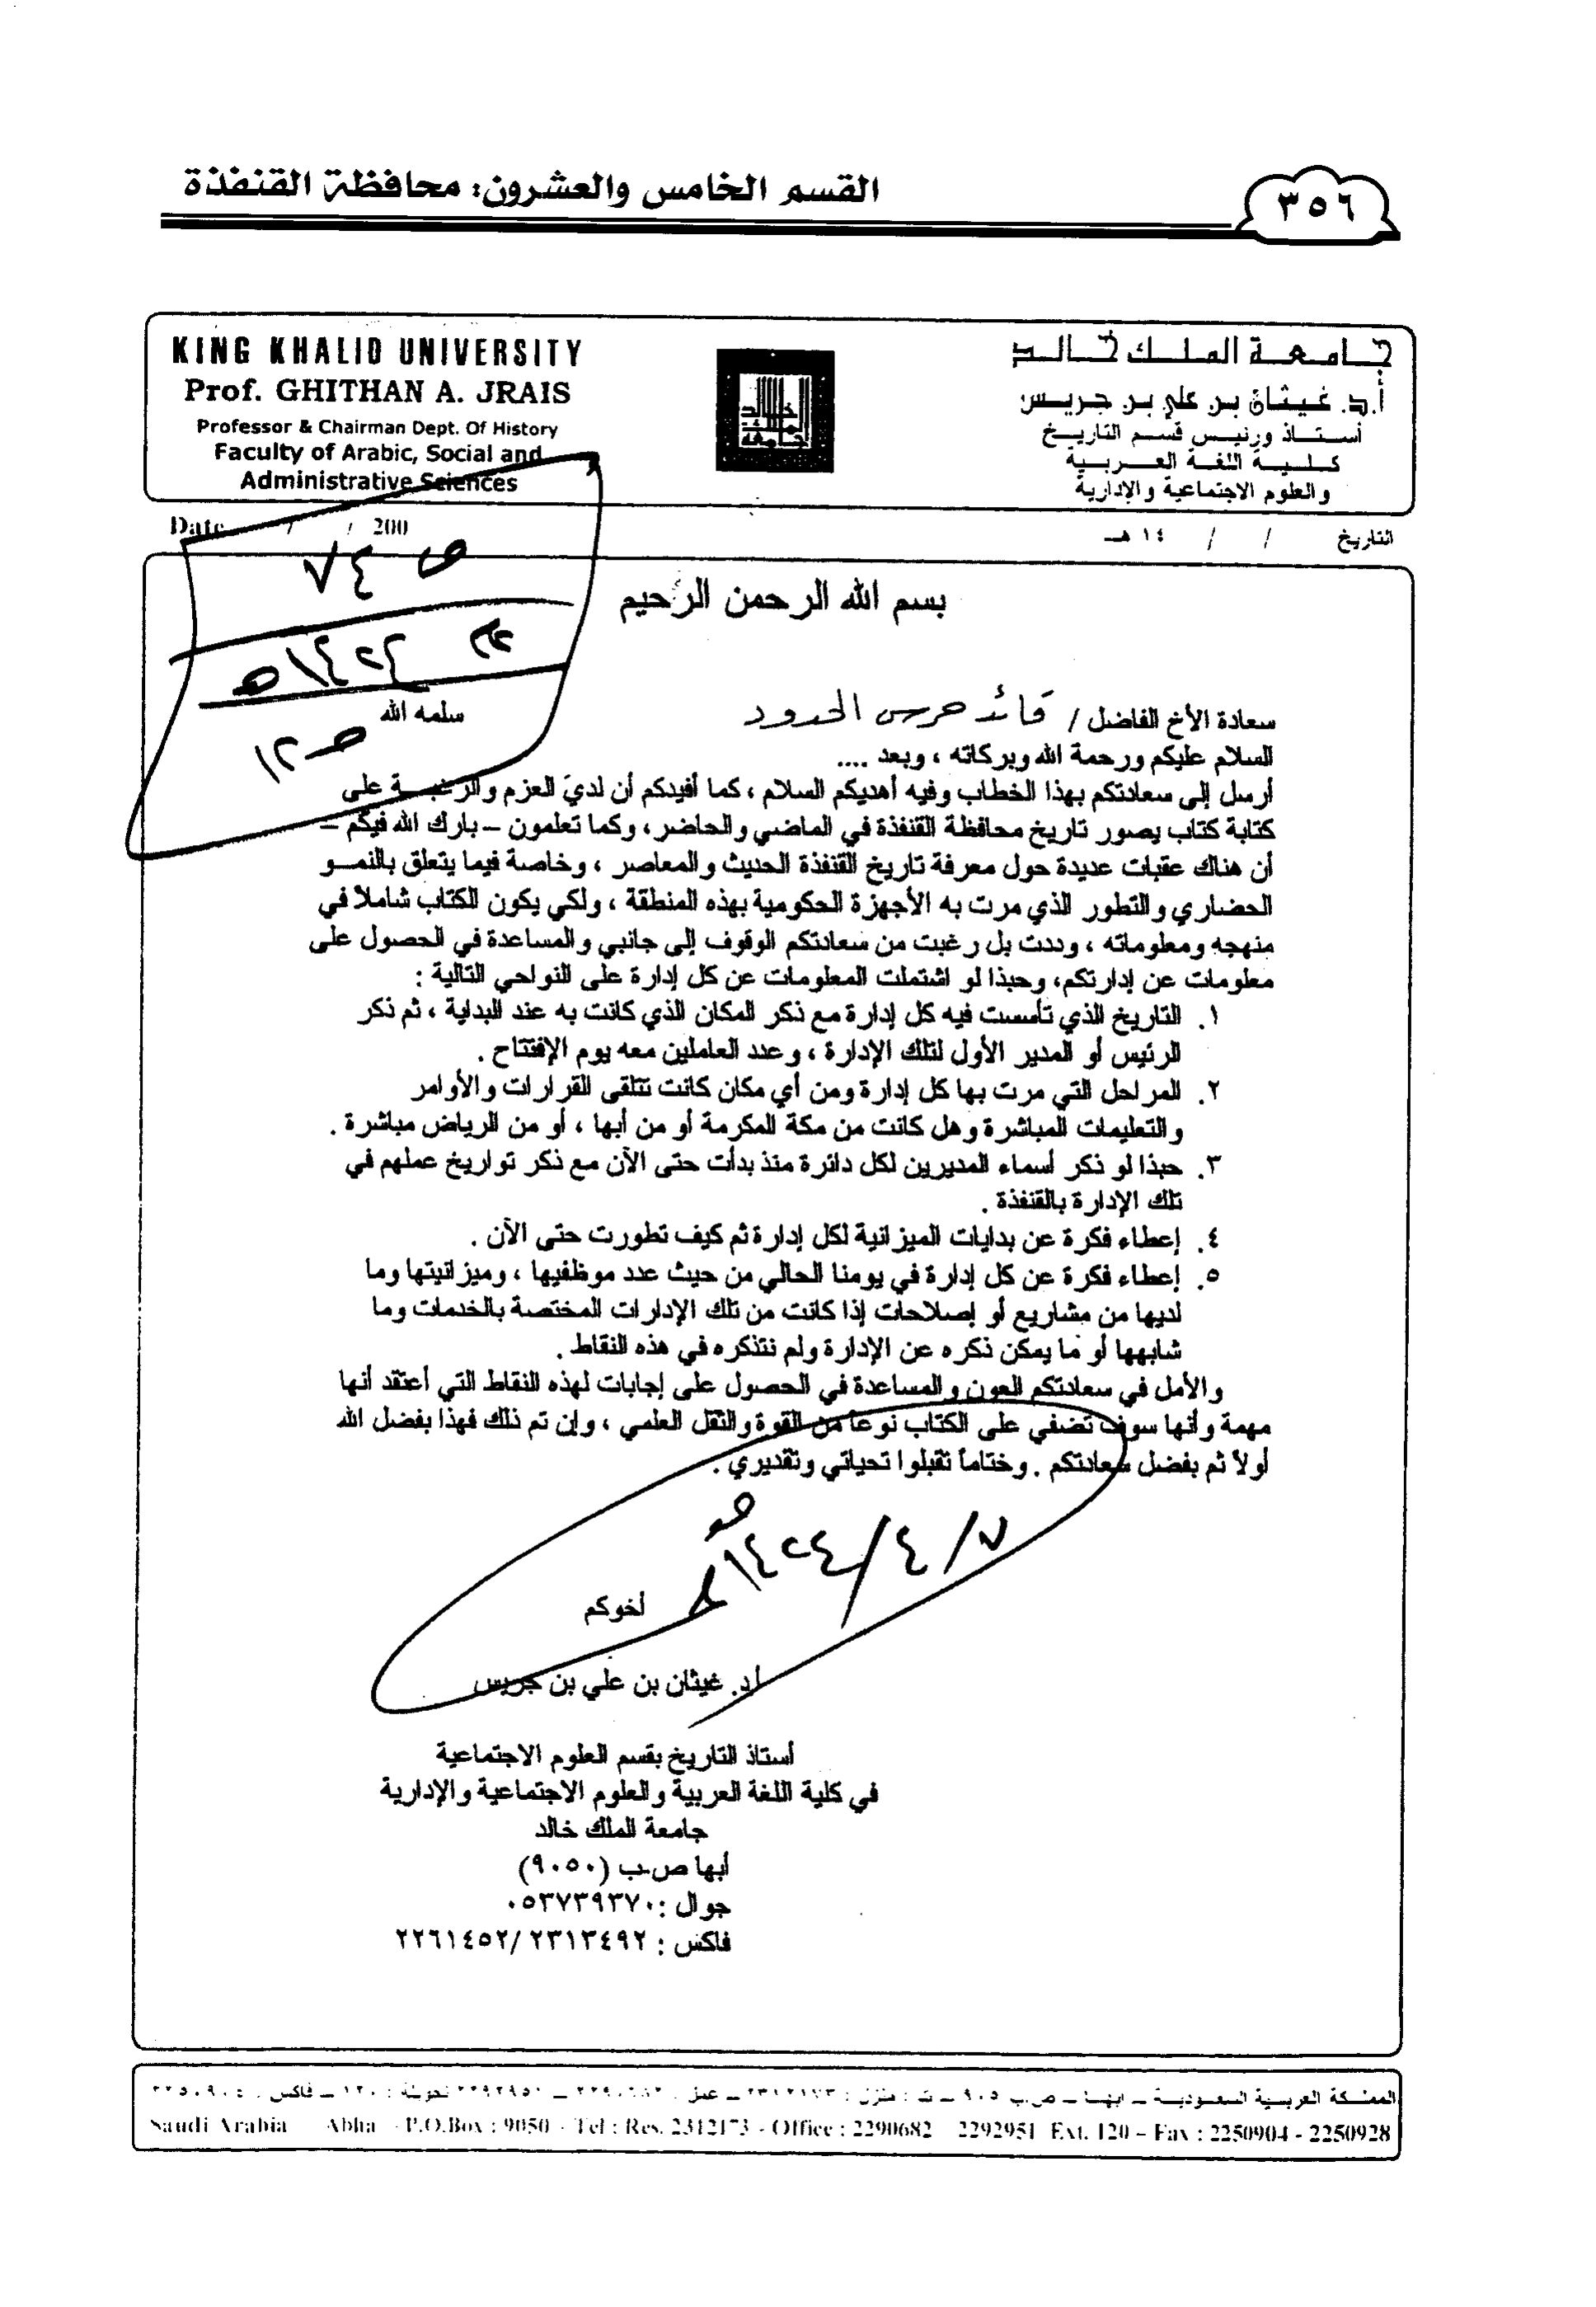 القسم الخامس والعشرون: محافظة القنفذة
٣٥٦
KING KHALID UNIVERSITY
Prof. GHITHAN A. JRAIS
Professor & Chairman Dept. Of History
Faculty of Arabic, Social and
Administrative Sciences
جامعة الملك خالد
أ.د. غيثان بن علي بن جريس
أستاذ ورئيس قسم التاريخ
كلية اللغة العربية
والعلوم الاجتماعية والإدارية
Date / / 200
التاريخ / / ١٤ هـ
ص ٧٤
١٤٢٤هـ
ص ١٢
بسم الله الرحمن الرحيم
سعادة الأخ الفاضل / قائد حرس الحدود سلمه الله
السلام عليكم ورحمة الله وبركاته ، وبعد ....
أرسل إلى سعادتكم بهذا الخطاب وفيه أهديكم السلام ، كما أفيدكم أن لديّ العزم والرغبة على
كتابة كتاب يصور تاريخ محافظة القنفذة في الماضي والحاضر، وكما تعلمون – بارك الله فيكم –
أن هناك عقبات عديدة حول معرفة تاريخ القنفذة الحديث والمعاصر ، وخاصة فيما يتعلق بالنمو
الحضاري والتطور الذي مرت به الأجهزة الحكومية بهذه المنطقة ، ولكي يكون الكتاب شاملا في
منهجه ومعلوماته ، وددت بل رغبت من سعادتكم الوقوف إلى جانبي والمساعدة في الحصول على
معلومات عن إدارتكم، وحبذا لو اشتملت المعلومات عن كل إدارة على النواحي التالية :
١. التاريخ الذي تأسست فيه كل إدارة مع ذكر المكان الذي كانت به عند البداية ، ثم ذكر
الرئيس أو المدير الأول لتلك الإدارة ، وعدد العاملين معه يوم الإفتتاح .
٢. المراحل التي مرت بها كل إدارة ومن أي مكان كانت تتلقى القرارات والأوامر
والتعليمات المباشرة وهل كانت من مكة المكرمة أو من أبها ، أو من الرياض مباشرة .
٣. حبذا لو ذكر أسماء المديرين لكل دائرة منذ بدأت حتى الآن مع ذكر تواريخ عملهم في
تلك الإدارة بالقنفذة .
٤. إعطاء فكرة عن بدايات الميزانية لكل إدارة ثم كيف تطورت حتى الآن .
٥. إعطاء فكرة عن كل إدارة في يومنا الحالي من حيث عدد موظفيها ، وميزانيتها وما
لديها من مشاريع أو إصلاحات إذا كانت من تلك الإدارات المختصة بالخدمات وما
شابهها أو ما يمكن ذكره عن الإدارة ولم نتذكره في هذه النقاط .
والأمل في سعادتكم العون والمساعدة في الحصول على إجابات لهذه النقاط التي أعتقد أنها
مهمة وأنها سوف تضفي على الكتاب نوعاً من القوة والثقل العلمي ، وإن تم ذلك فهذا بفضل الله
أولاً ثم بفضل سعادتكم . وختاماً تقبلوا تحياتي وتقديري .
٧ / ٤ / ١٤٢٤هـ
أخوكم
أ.د. غيثان بن علي بن جريس
أستاذ التاريخ بقسم العلوم الاجتماعية
في كلية اللغة العربية والعلوم الاجتماعية والإدارية
جامعة الملك خالد
أبها ص.ب (٩٠٥٠)
جوال :٠٥٣٧٣٩٣٧٠
فاكس : ٢٢٦١٤٥٢/٢٣١٣٤٩٢
المملكة العربية السعودية – ابها – ص.ب ٩٠٥ – ت : منزل : ٢٣١٢١٧٣ – عمل : – ٢٢٩٢٩٥١ تحويلة : ١٢٠ – فاكس :
Saudi Arabia Abha - P.O.Box : 9050 - Tel : Res. 2312173 - Office : 2290682 2292951 Ext. 120 – Fax : 2250904 - 2250928